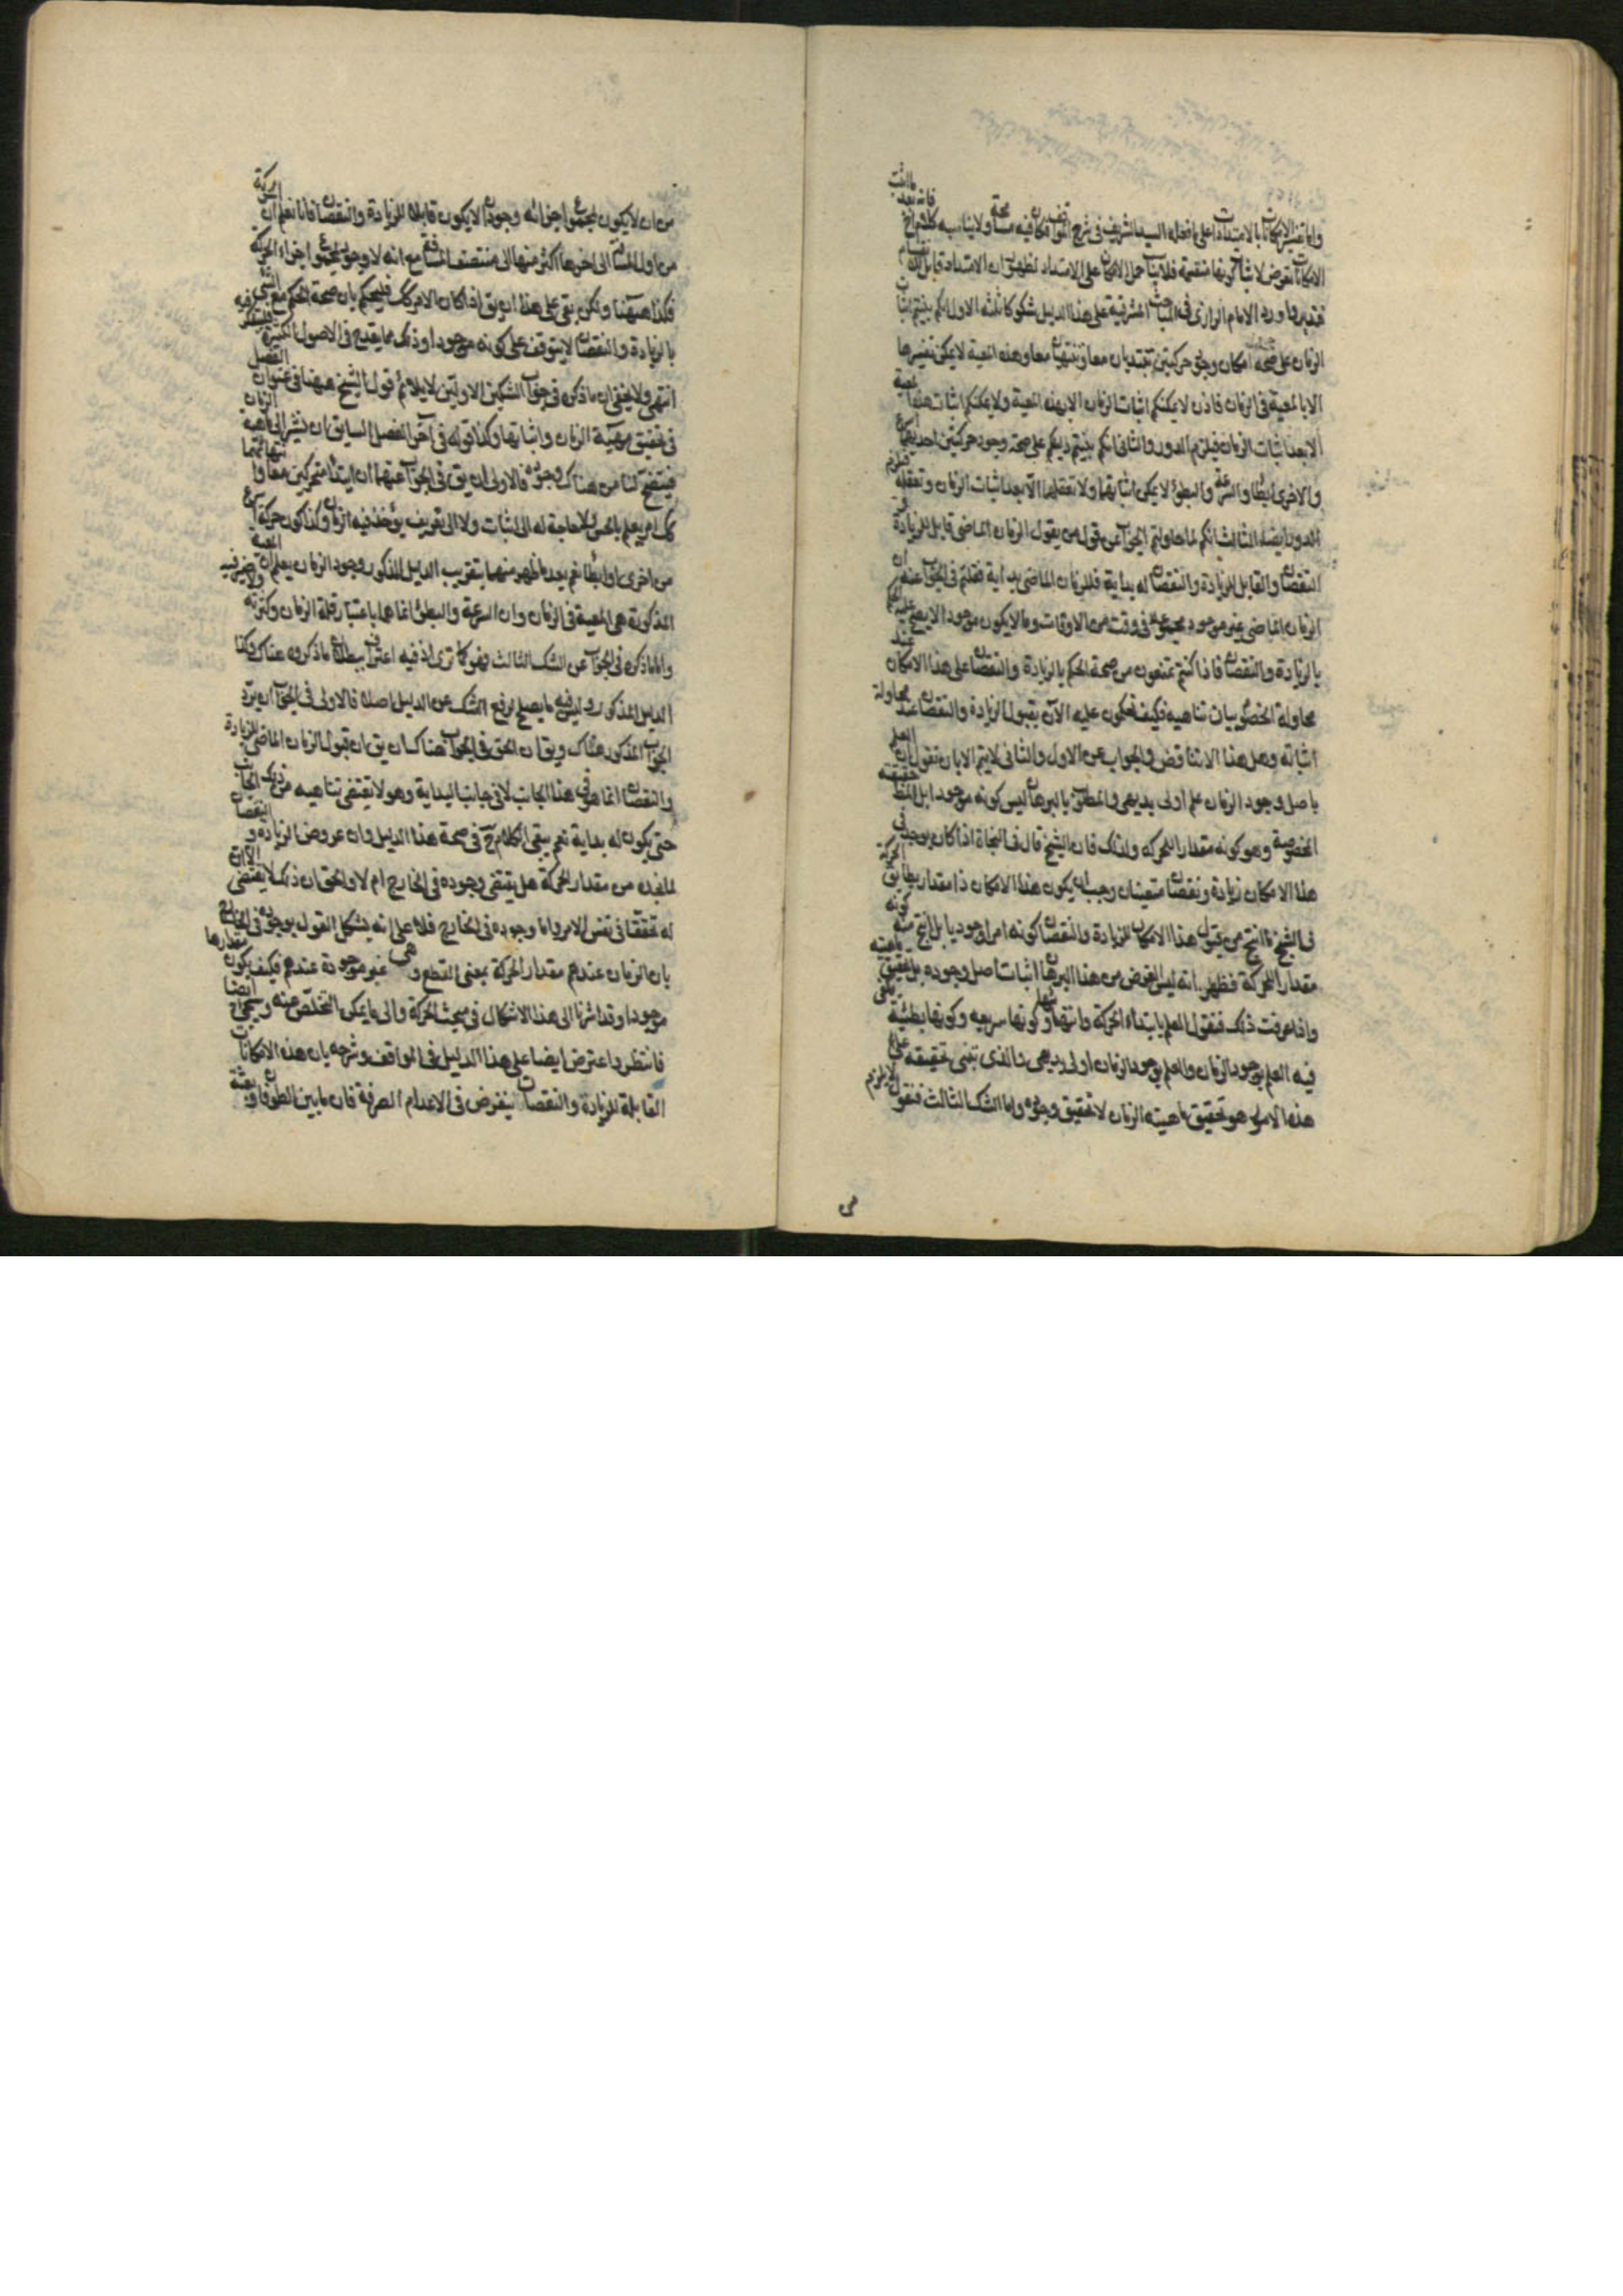 واما تفسير الامكانات بالامتدادات على ما فعله السيد الشريف في شرح المواقف فكأنه فيه مسامحة ولا يناسبه كلام الشيخ فانه بعد ما اثبت
الامكانات تعرض لاثبات كونها منقسمة فلا يناسب حمل الامكان على الامتداد لظهور ان الامتداد قابل للانقسام
فتدبر واورد الامام الرازي في المباحث المشرقية على هذا الدليل شكوكا ثلثة الاول انكم بنيتم اثبات
الزمان على صحة امكان وجود حركتين تبتديان معا وتنتهيان معا وهذه المعية لا يمكن تفسيرها
الا بالمعية في الزمان فاذن لا يمكنكم اثبات الزمان الا بهذه المعية ولا يمكنكم اثبات هذه المعية
الا بعد اثبات الزمان فيلزم الدور والثاني انكم بنيتم دليلكم على صحة وجود حركتين احديهما اسرع
والاخرى ابطأ والسرعة والبطؤ لا يمكن اثباتهما ولا تعقلهما الا بعد اثبات الزمان وتعقله فيلزم
الدور ايضا الثالث انكم لما حاولتم الجواب عن قول من يقول الزمان الماضي قابل للزيادة و
النقصان والقابل للزيادة والنقصان له بداية فللزمان الماضي بداية فقلتم في الجواب عنه ان
الزمان الماضي غير موجود بمجموعه في وقت من الاوقات وما لا يكون موجودا لا يصح الحكم عليه
بالزيادة والنقصان فاذا كنتم تمنعون من صحة الحكم بالزيادة والنقصان على هذا الامكان عند
محاولة الخصوم بيان تناهيه فكيف تحكمون عليه الآن بقبول الزيادة والنقصان عند محاولة
اثباته وهل هذا الا تناقض والجواب عن الاول والثاني لا يتم الا بان نقول ان العلم
باصل وجود الزمان علم اولى بديهي والمطلوب بالبرهان ليس كونه موجودا بل حقيقته
المخصوصة وهو كونه مقدار للحركة ولذلك فان الشيخ قال في النجاة اذا كان يوجد في
هذا الامكان زيادة ونقصان متعينان وجب ان يكون هذا الامكان ذا مقدار يطابق الحركة
فالشيخ ما انتج من قبول هذا الامكان للزيادة والنقصان كونه امرا وجوديا بل انتج منه كونه
مقدار الحركة فظهر انه ليس الغرض من هذا البرهان اثبات اصل وجوده بل تحقيق ماهيته
واذا عرفت ذلك فنقول العلم بابتداء الحركة وانتهائها وكونها سريعه وكونها بطيئة يكفي
فيه العلم بوجود الزمان والعلم بوجود الزمان اولى بديهي والذي تبتني تحقيقه على
هذه الامور هو تحقيق ماهيته الزمان لا تحقيق وجوده واما الشك الثالث فنقول لا يلزم
من ان لا يكون لمجموع اجزائه وجود ان لا يكون قابلا للزيادة والنقصان فانا نعلم ان الحركة
من اول المسافة الى اخرها اكثر منها الى منتصف المسافة مع انه لا وجود لمجموع اجزاء الحركة
فكذا ههنا ولكن بقي على هذا ان يق اذا كان الامر كذلك فليحكم بان صحة الحكم على الشيء
بالزيادة والنقصان لا يتوقف على كونه موجودا وذلك مما يقدح في الاصول الكثيرة فليتفكر فيه
انتهى ولا يخفى ان ما ذكره في جواب الشكين الاولين لا يلائم قول الشيخ ههنا في عنوان الفصل
في تحقيق مهية الزمان واثباتها وكذا قوله في آخر الفصل السابق ان نشير الى ماهية الزمان
فيتضح لنا من هناك وجوده فالاولى ان يق في الجواب عنهما ان ابتداء متحركين معا وانتهائهما
كك امر يعلم بالحس ولا حاجة له الى اثبات ولا الى تعريف يؤخذ فيه الزمان وكذا كون حركة اسرع
من اخرى او ابطأ نعم بعد ما ظهر منها بتقريب الدليل المذكور وجود الزمان يعلم ان المعية
المذكورة هي المعية في الزمان وان السرعة والبطؤ انما هما باعتبار قلة الزمان وكثرته ولا ضير فيه
واما ما ذكره في الجواب عن الشك الثالث فهو كما ترى اذ فيه اعتراف ببطلان ما ذكروه هناك وكذا
الدليل المذكور وليس فيه ما يصلح لرفع الشك عن الدليل اصلا فالاولى في الجواب ان يرد
الجواب المذكور هناك ويق ان الحق في الجواب هناك ان يق ان قبول الزمان الماضي للزيادة
والنقصان انما هو في هذا الجانب لا في جانب البداية وهو لا يقتضي تناهيه من ذلك الجانب
حتى يكون له بداية نعم يبقى الكلام ح في صحة هذا الدليل وان عروض الزيادة و النقصان
لما نجده من مقدار الحركة هل يقتضي وجوده في الخارج ام لا والحق ان ذلك لا يقتضي الا ان
له تحققا في نفس الامر واما وجوده في الخارج فلا على انه يشكل القول بوجوده في الخارج
بان الزمان عندهم مقدار الحركة بمعنى القطع و هي غير موجودة عندهم فكيف يكون مقدارها
موجودا وقد اشرنا الى هذا الاشكال في مبحث الحركة والى ما يمكن التخلص عنه وسيجيء ايضا
فانتظر واعترض ايضا على هذا الدليل في المواقف وشرحه بان هذه الامكانات
القابلة للزيادة والنقصان يفرض في الاعدام الصرفة فان ما بين الطوفان وبعثة